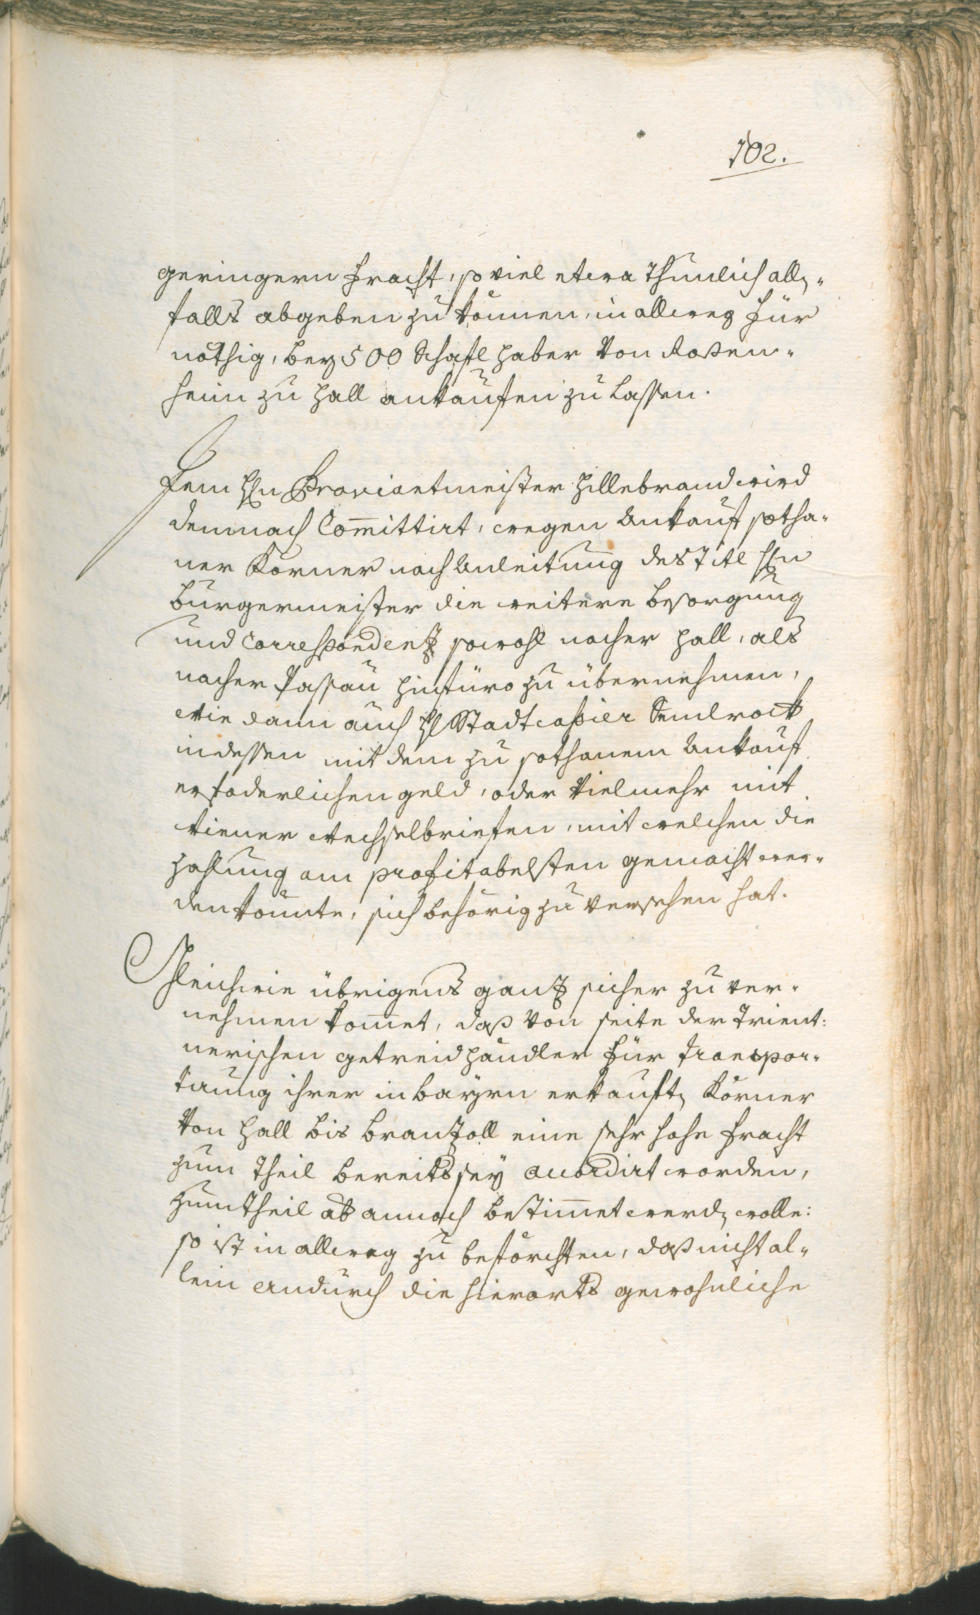 102.
geringern fracht, so viel etwa thunlich allen-
falls abgeben zu können, in allweg für
nöthig, bey 500 Schafl haber von Rosen-
heim zu Hall ankaufen zu lassen.
Dem Hrn Proviantmeister Hillebrand wird
demnach Com̅ittirt, wegen Ankauf sotha-
ner Körner nach Anleitung des Titl Hrn
burgermeister die weitere besorgung
und Correspondenz sowohl nacher Hall, als
nacher Passau hinfüro zu übernehmen,
wie dann auch H. Stadtcassier Semlrock
indessen mit dem zu sothanem Ankauf
erfoderlichen geld, oder vielmehr mit
wiener wechselbriefen, mit welchen die
Zahlung am profitabelsten gemacht wer-
den konnte, sich behörig zu versehen hat.
Gleichwie übrigens ganz sicher zu ver-
nehmen kom̅et, daß von seite der Trient:
nerischen getreidhändler für transpor-
tirung ihrer in bayrn erkauften Körner
von Hall bis branzoll eine sehr hohe fracht
zum Theil bereits sey accordirt worden,
zum Theil ab annoch bestim̅et werden wolle:
so ist in allweg zu beförchten, daß nicht al-
lein andurch die hierorts gewohnliche